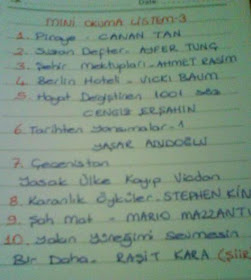 MİNİ OKUMA LİSTEM-3
1. Piraye - CANAN TAN
2. Suzan Defter - AYFER TUNÇ
3. Şehir Mektupları - AHMET RASİM
4. Berlin Hoteli - VICKI BAUM
5. Hayat Değiştiren 1001 Söz
CENGİZ ERŞAHİN
6. Tarihten Yansımalar - 1
YAŞAR
7. Çeçenistan
Yasak Ülke Kayıp Vicdan
8. Karanlık Öyküler - STEPHEN KİN
9. Şah Mat - MARIO MAZZANTI
10. Yalan Yüreğimi Sevmesin
Bir Daha - RAŞİT KARA (Şiir